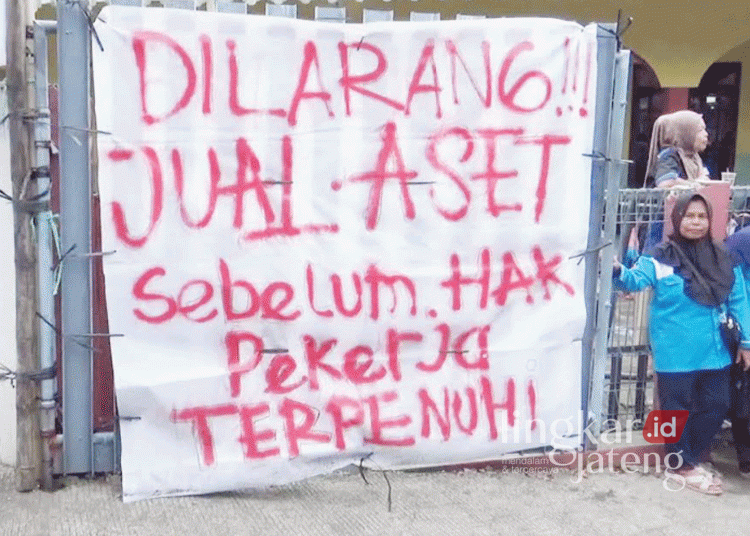 DILARANG!!!
JUAL ASET
SebeLUM. HAK
PekerJa
TERPENUHI
lingkar.id
jateng
mendalam
& terpercaya